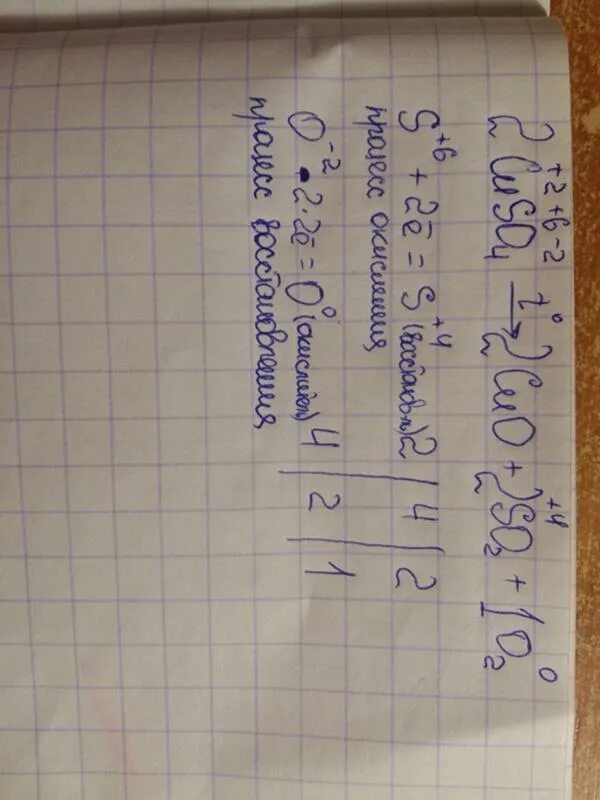 2CuSO₄ →t° 2CuO + 2SO₂ + 1O₂
+2 +6 -2 +4 0
S⁺⁶ + 2ē = S⁺⁴ (восстановль) 2 | 4 | 2
процесс окисления
O⁻² - 2·2ē = O⁰ (окислител) 4 | 2 | 1
процесс восстановления